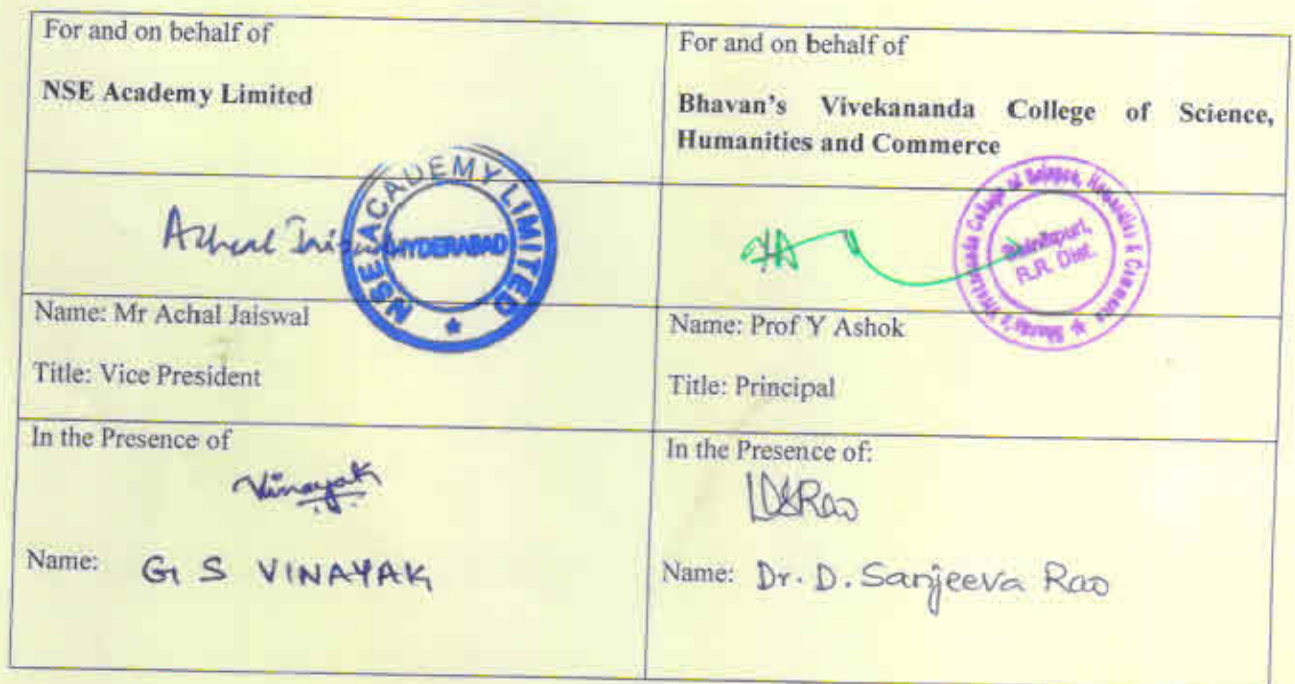 For and on behalf of
NSE Academy Limited
For and on behalf of
Bhavan's Vivekananda College of Science,
Humanities and Commerce
Achal Jaiswal
NSE ACADEMY LIMITED
HYDERABAD
Bhavan's Vivekananda College of Science, Humanities & Commerce
Sainikpuri,
R.R. Dist.
Name: Mr Achal Jaiswal
Title: Vice President
Name: Prof Y Ashok
Title: Principal
In the Presence of
Vinayak
Name: G S VINAYAK
In the Presence of:
Name: Dr. D. Sanjeeva Rao